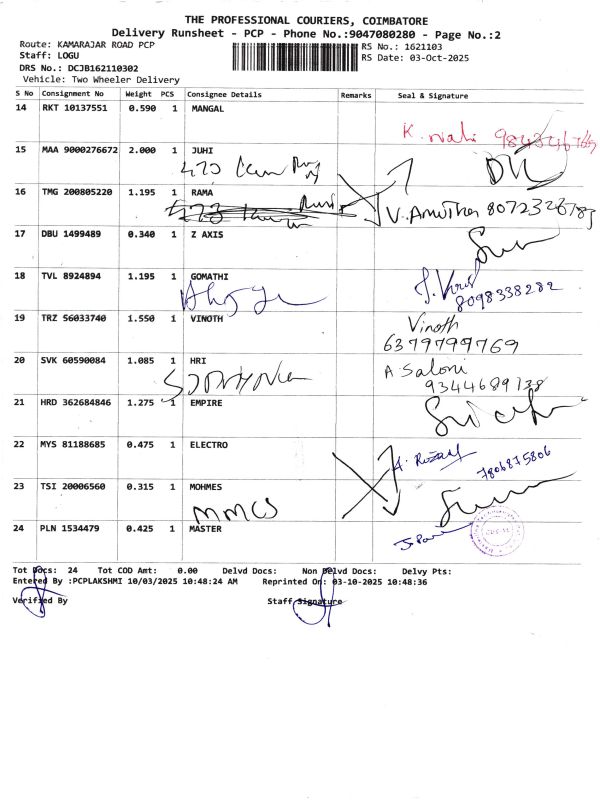 THE PROFESSIONAL COURIERS, COIMBATORE
Delivery Runsheet - PCP - Phone No.:9047080280 - Page No.:2
Route: KAMARAJAR ROAD PCP
Staff: LOGU
DRS No.: DCJB162110302
Vehicle: Two Wheeler Delivery
RS No.: 1621103
RS Date: 03-Oct-2025
S No Consignment No Weight PCS Consignee Details Remarks Seal & Signature
14 RKT 10137551 0.590 1 MANGAL
15 MAA 9000276672 2.000 1 JUHI
16 TMG 200805220 1.195 1 RAMA
17 DBU 1499489 0.340 1 Z AXIS
18 TVL 8924894 1.195 1 GOMATHI
8098338282
19 TRZ 56033740 1.550 1 VINOTH
Vinoth
6379799769
20 SVK 60590084 1.085 1 HRI
A Saloni
21 HRD 362684846 1.275 1 EMPIRE
22 MYS 81188685 0.475 1 ELECTRO
7806875806
23 TSI 20006560 0.315 1 MOHMES
MMCS
24 PLN 1534479 0.425 1 MASTER
Tot Docs: 24 Tot COD Amt: 0.00 Delvd Docs: Non Delvd Docs: Delvy Pts:
Entered By :PCPLAKSHMI 10/03/2025 10:48:24 AM Reprinted On: 03-10-2025 10:48:36
Verified By Staff Signature